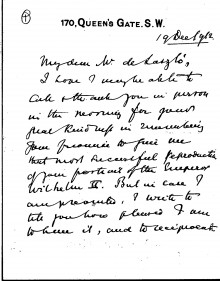 ①
170, QUEEN'S GATE. S.W.
19 Dec 1912
My dear Mr de László,
I hope I may be able to
call & thank you in person
in the morning for your
great kindness in remembering
your promise to give me
that most successful reproduction
of your portrait of the Emperor
Wilhelm II. But in case I
am prevented, I write to
tell you how pleased I am
to have it, and to reciprocate